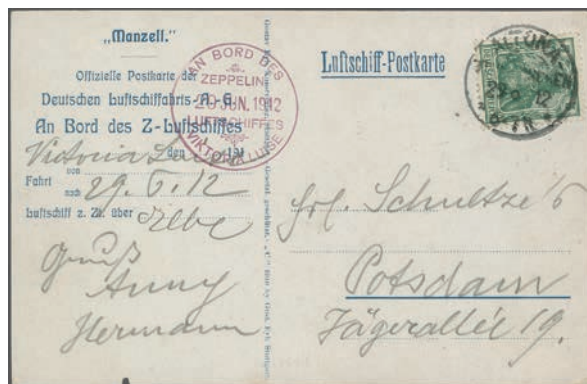 „Manzell.“
Offizielle Postkarte der
Deutschen Luftschiffahrts-A.-G.
An Bord des Z-Luftschiffes
Victoria Luise
den 191
Fahrt von
nach
29. 6. 12
Luftschiff z. Zt. über Elbe
Gruß
Anny
Hermann
AN BORD DES
ZEPPELIN
29 JUN. 1912
LUFTSCHIFFES
VIKTORIA LUISE
Luftschiff-Postkarte
12
Frl. Schultze's
Potsdam
Jägerallée 19.